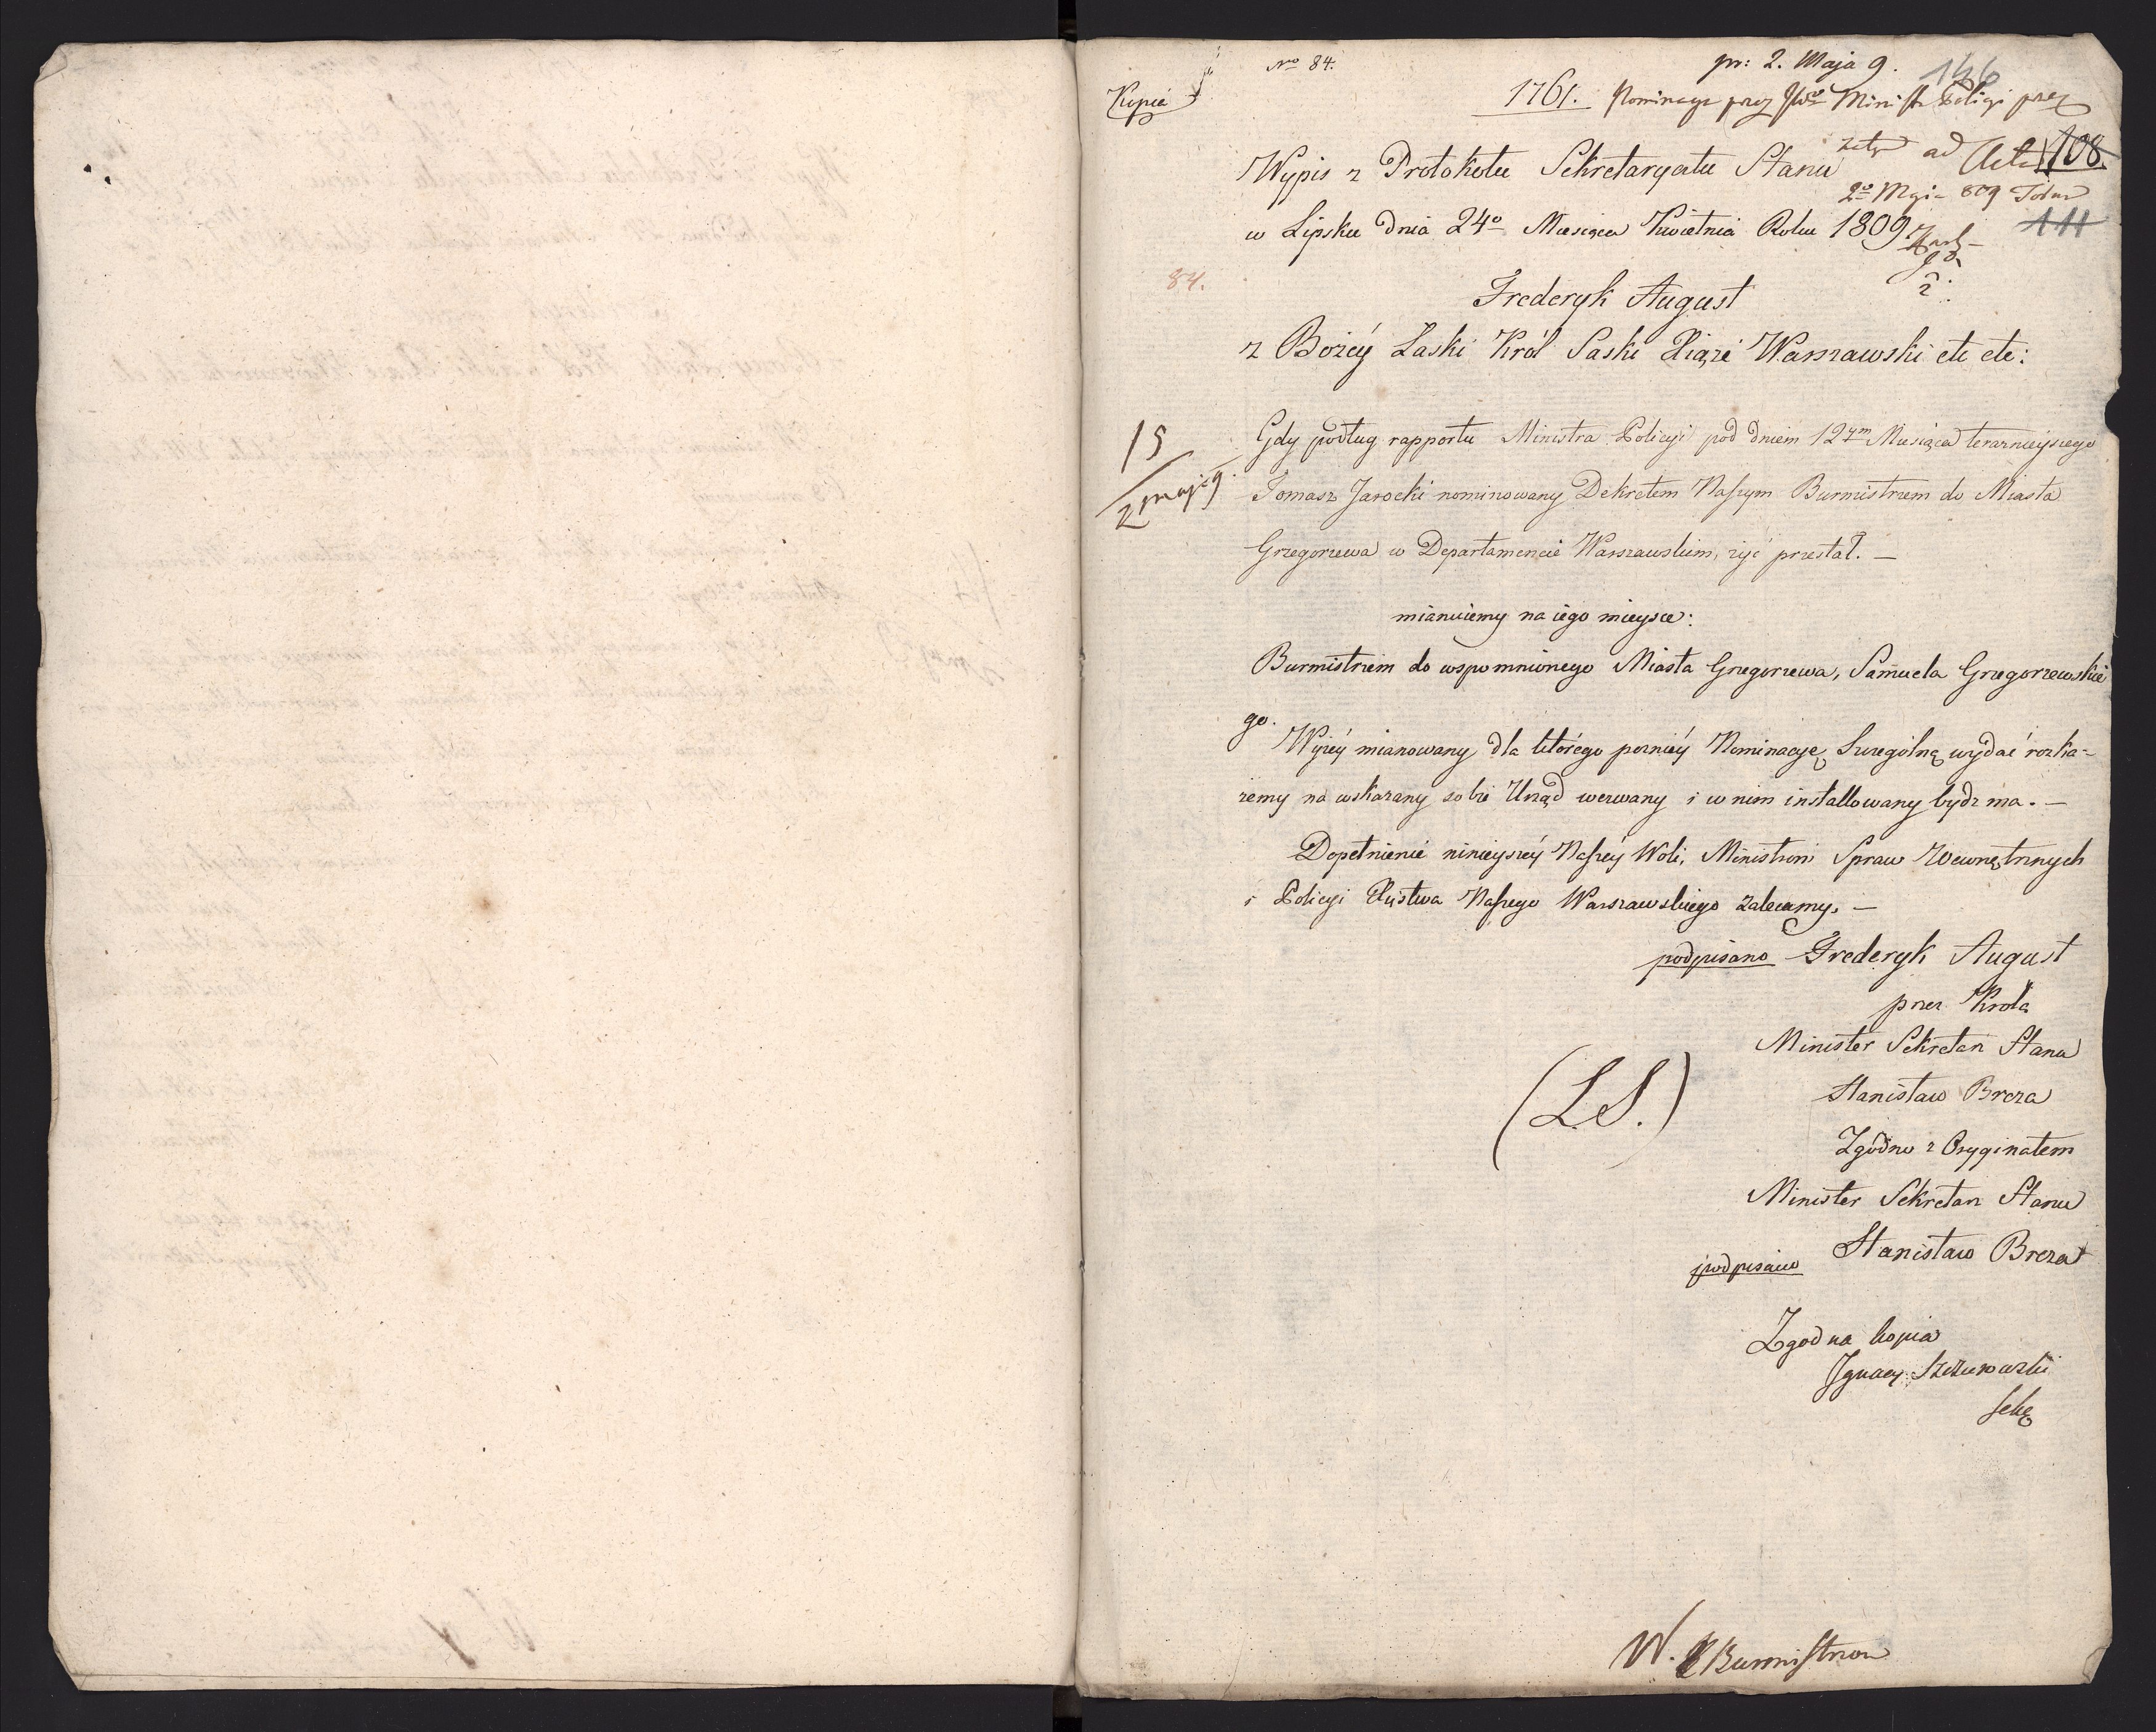 Nro 84.
pr: 2. Maja 9.
146
Kopia
1761. Nominacya przez JWo Ministr Policyi prez
ad Acta 108.
2o Maja 809
Wypis z Protokołu Sekretaryatu Stanu
w Lipsku dnia 24o Miesiąca Kwietnia Roku 1809
111
84.
Frederyk August
z Bożéy Łaski Król Saski Xiąże Warszawski etc etc:
15
2 maja 9.
Gdy podług rapportu Ministra Policyi pod dniem 12ym Miesiąca terazniejszego
Tomasz Jarocki nominowany Dekretem Naszym Burmistrzem do Miasta
Grzegorzewa w Departamencie Warszawskim, żyć przestał. —
mianuiemy na iego mieysce:
Burmistrzem do wspomnionego Miasta Grzegorzewa, Samuela Grzegorzewskie
go.
Wyżéy mianowany dla którego pozniéy Nominacyę Szczególną wydać rozka=
żemy na wskazany sobie Urząd wezwany i w nim installowany bydz ma. —
Dopełnienie ninieyszéy Naszéy Woli, Ministrowi Spraw Wewnętrznych
i Policyi Xięstwa Naszego Warszawskiego zalecamy. —
podpisano Frederyk August
przez Krola
Minister Sekretarz Stanu
Stanisław Breza
(L.S.)
Zgodno z Oryginałem
Minister Sekretarz Stanu
podpisano Stanisław Breza
Zgodna kopia
Ignacy
Sekr
W. Burmistrzow